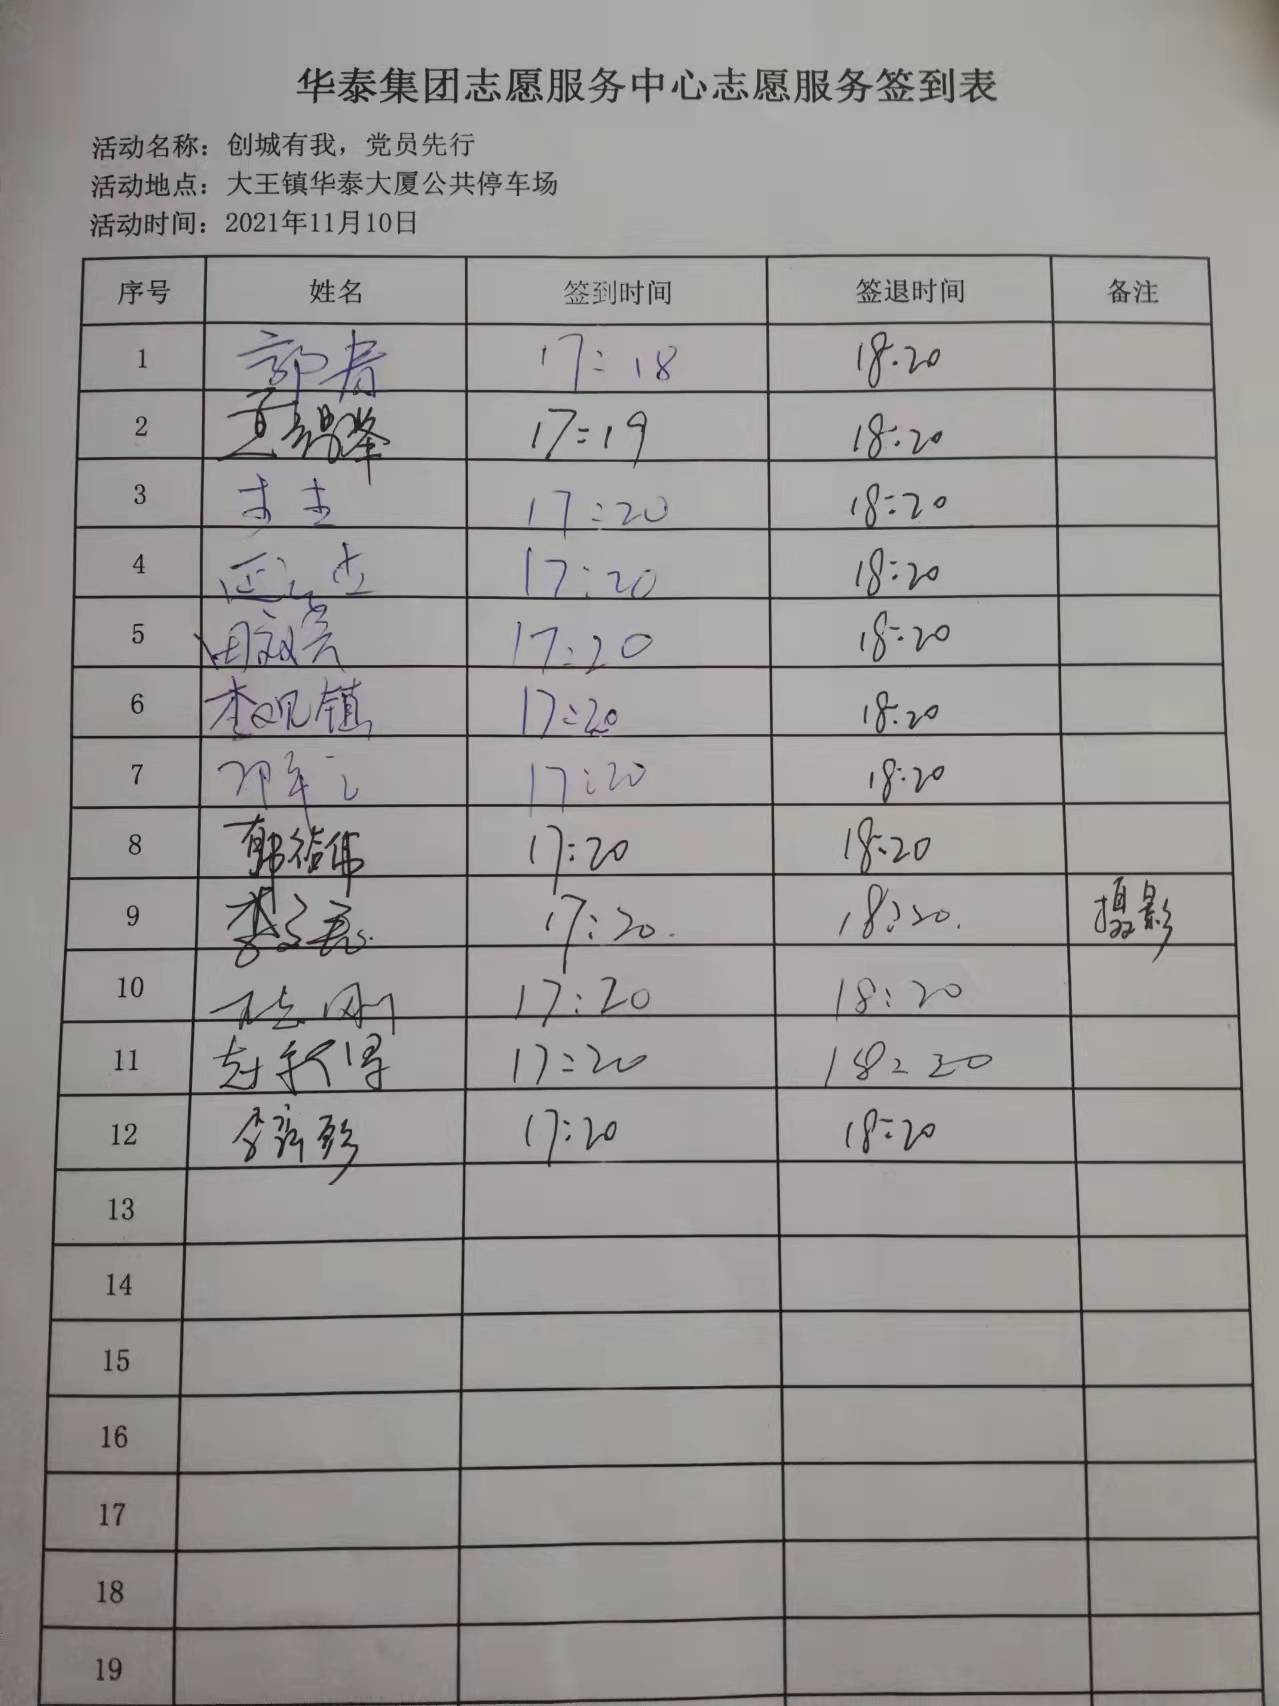 华泰集团志愿服务中心志愿服务签到表
活动名称：创城有我，党员先行
活动地点：大王镇华泰大厦公共停车场
活动时间：2021年11月10日
序号 姓名 签到时间 签退时间 备注
1 17:18 18:20
2 17:19 18:20
3 17:20 18:20
4 17:20 18:20
5 17:20 18:20
6 李观镇 17:20 18:20
7 17:20 18:20
8 17:20 18:20
9 17:20. 18:20. 摄影
10 17:20 18:20
11 17:20 18:20
12 17:20 18:20
13
14
15
16
17
18
19